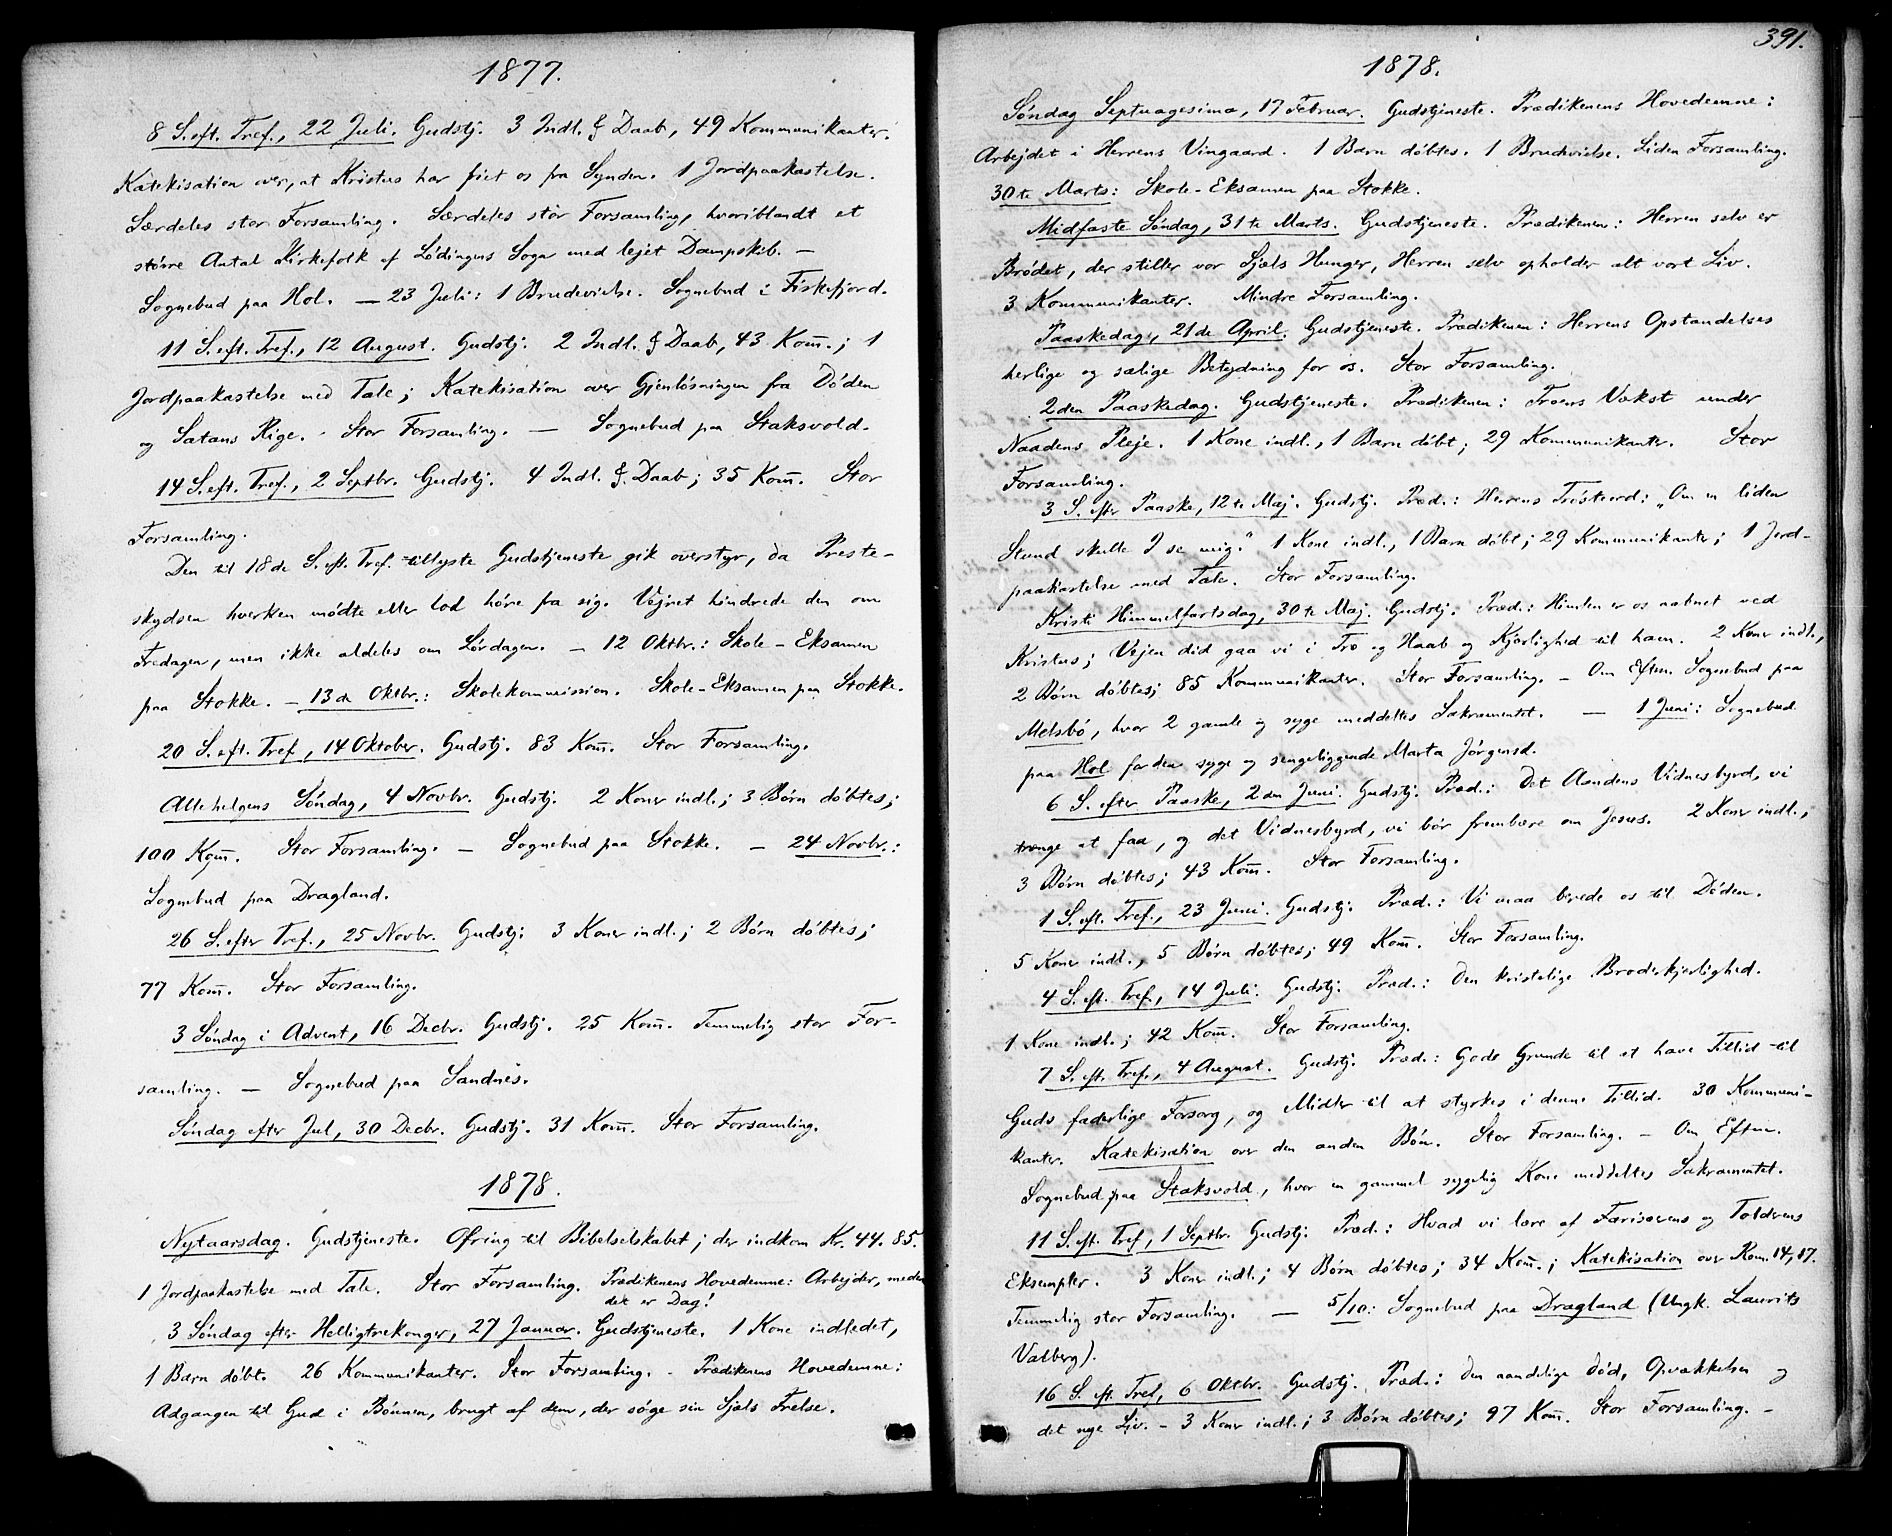 1877.
8 S. eft. Tref., 22 Juli. Gudstj. 3 Indl. & Daab, 49 Kommunikanter.
Katekisation over, at Kristus har friet os fra Synden. 1 Jordpaakastelse.
Særdeles stor Forsamling. Særdeles stor Forsamling, hvoriblandt et
større Antal Kirkefolk af Lödingens Sogn med lejet Dampskib. —
Sognebud paa Hol. — 23 Juli: 1 Brudevielse. Sognebud i Fiskefjord.
11 S. eft. Tref., 12 August. Gudstj. 2 Indl. & Daab, 43 Kom̄.; 1
Jordpaakastelse med Tale; Katekisation over Gjenlösningen fra Döden
og Satans Rige. Stor Forsamling. — Sognebud paa Staksvold.
14 S. eft. Tref., 2 Septbr. Gudstj. 4 Indl. & Daab; 35 Kom̄. Stor
Forsamling.
Den til 18de S. eft. Tref. tillyste Gudstjeneste gik overstyr, da Preste-
skydsen hverken mödte eller lod höre fra sig. Vejret hindrede den om
Fredagen, men ikke aldeles om Lördagen. — 12 Oktbr.: Skole-Eksamen
paa Stokke. — 13de Oktbr.: Skolekommission. Skole-Eksamen paa Stokke.
20 S. eft. Tref., 14 Oktober. Gudstj. 83 Kom̄. Stor Forsamling.
Allehelgens Söndag, 4 Novbr. Gudstj. 2 Koner indl.; 3 Börn döbtes;
100 Kom̄. Stor Forsamling. — Sognebud paa Stokke. — 24 Novbr.:
Sognebud paa Dragland.
26 S. efter Tref., 25 Novbr. Gudstj. 3 Koner indl.; 2 Börn döbtes;
77 Kom̄. Stor Forsamling.
3 Söndag i Advent, 16 Decbr. Gudstj. 25 Kom̄. Temmelig stor For-
samling. — Sognebud paa Sandnes.
Söndag efter Jul, 30 Decbr. Gudstj. 31 Kom̄. Stor Forsamling.
1878.
Nytaarsdag. Gudstjeneste. Ofring til Bibelselskabet; der indkom Kr. 44.85.
1 Jordpaakastelse med Tale. Stor Forsamling. Prædikenens Hovedemne: Arbejder, meden
det er Dag!
3 Söndag efter Helligtrekonger, 27 Januar. Gudstjeneste. 1 Kone indledet,
1 Barn döbt. 26 Kommunikanter. Stor Forsamling. - Prædikenens Hovedemne:
Adgangen til Gud i Bönnen, brugt af dem, der söge sin Sjæls Frelse.
391.
1878.
Söndag Septuagesima, 17 Februar. Gudstjeneste. Prædikenens Hovedemne:
Arbejdet i Herrens Vingaard. 1 Barn döbtes. 1 Brudevielse. Liden Forsamling.
30te Marts: Skole-Eksamen paa Stokke.
Midfaste Söndag, 31te Marts. Gudstjeneste. Prædikenen: Herren selv er
Brödet, der stiller vor Sjæls Hunger, Herren selv opholder alt vort Liv.
3 Kommunikanter. Mindre Forsamling.
Paaskedag, 21de April. Gudstjeneste. Prædikenen: Herrens Opstandelses
herlige og salige Betydning for os. Stor Forsamling.
2den Paaskedag. Gudstjeneste. Prædikenen: Troens Vækst under
Naadens Pleje. 1 Kone indl., 1 Barn döbt; 29 Kommunikanter. Stor
Forsamling.
3 S. efter Paaske, 12te Maj. Gudstj. Præd.: Herrens Tröstord: „Om en liden
Stund skulle I se mig." 1 Kone indl., 1 Barn döbt; 29 Kommunikanter; 1 Jord-
paakastelse med Tale. Stor Forsamling.
Kristi Himmelfartsdag, 30te Maj. Gudstj. Præd.: Himlen er os aabnet ved
Kristus; Vejen did gaa vi i Tro og Haab og Kjærlighed til ham. 2 Koner indl.,
2 Börn döbtes; 85 Kommunikanter. Stor Forsamling. - Om Eftm. Sognebud paa
Melsbö, hvor 2 gamle og syge meddeltes Sakramentet. — 1 Juni: Sognebud
paa Hol for den syge og sengeliggende Marta Jörgensd.
6 S. efter Paaske, 2den Juni. Gudstj. Præd.: Det Aandens Vidnesbyrd, vi
trænge at faa, og det Vidnesbyrd, vi bör frembære om Jesus. 2 Koner indl.,
3 Börn döbtes; 43 Kom̄. Stor Forsamling.
1 S. eft. Tref., 23 Juni. Gudstj. Præd.: Vi maa berede os til Döden.
5 Koner indl., 5 Börn döbtes; 49 Kom̄. Stor Forsamling.
4 S. eft. Tref., 14 Juli. Gudstj. Præd.: Den kristelige Broderkjærlighed.
1 Kone indl.; 42 Kom̄. Stor Forsamling.
7 S. eft. Tref., 4 August. Gudstj. Præd.: Gode Grunde til at have Tillid til
Guds faderlige Forsorg, og Midler til at styrkes i denne Tillid. 30 Kommuni-
kanter. Katekisation over den anden Bön. Stor Forsamling. - Om Eftm.
Sognebud paa Staksvold, hvor en gammel sygelig Kone meddeltes Sakramentet.
11 S. eft. Tref., 1 Septbr. Gudstj. Præd.: Hvad vi lære af Farisæerens og Tolderens
Eksempler. 3 Koner indl.; 4 Börn döbtes; 34 Kom̄.; Katekisation over Rom. 14, 17.
Temmelig stor Forsamling. — 5/10: Sognebud paa Dragland (Ungk. Laurits
Valberg).
16 S. eft. Tref., 6 Oktbr. Gudstj. Præd.: Den aandelige Död, Opvækkelsen og
det nye Liv. - 3 Koner indl.; 3 Börn döbtes; 97 Kom̄. Stor Forsamling. -